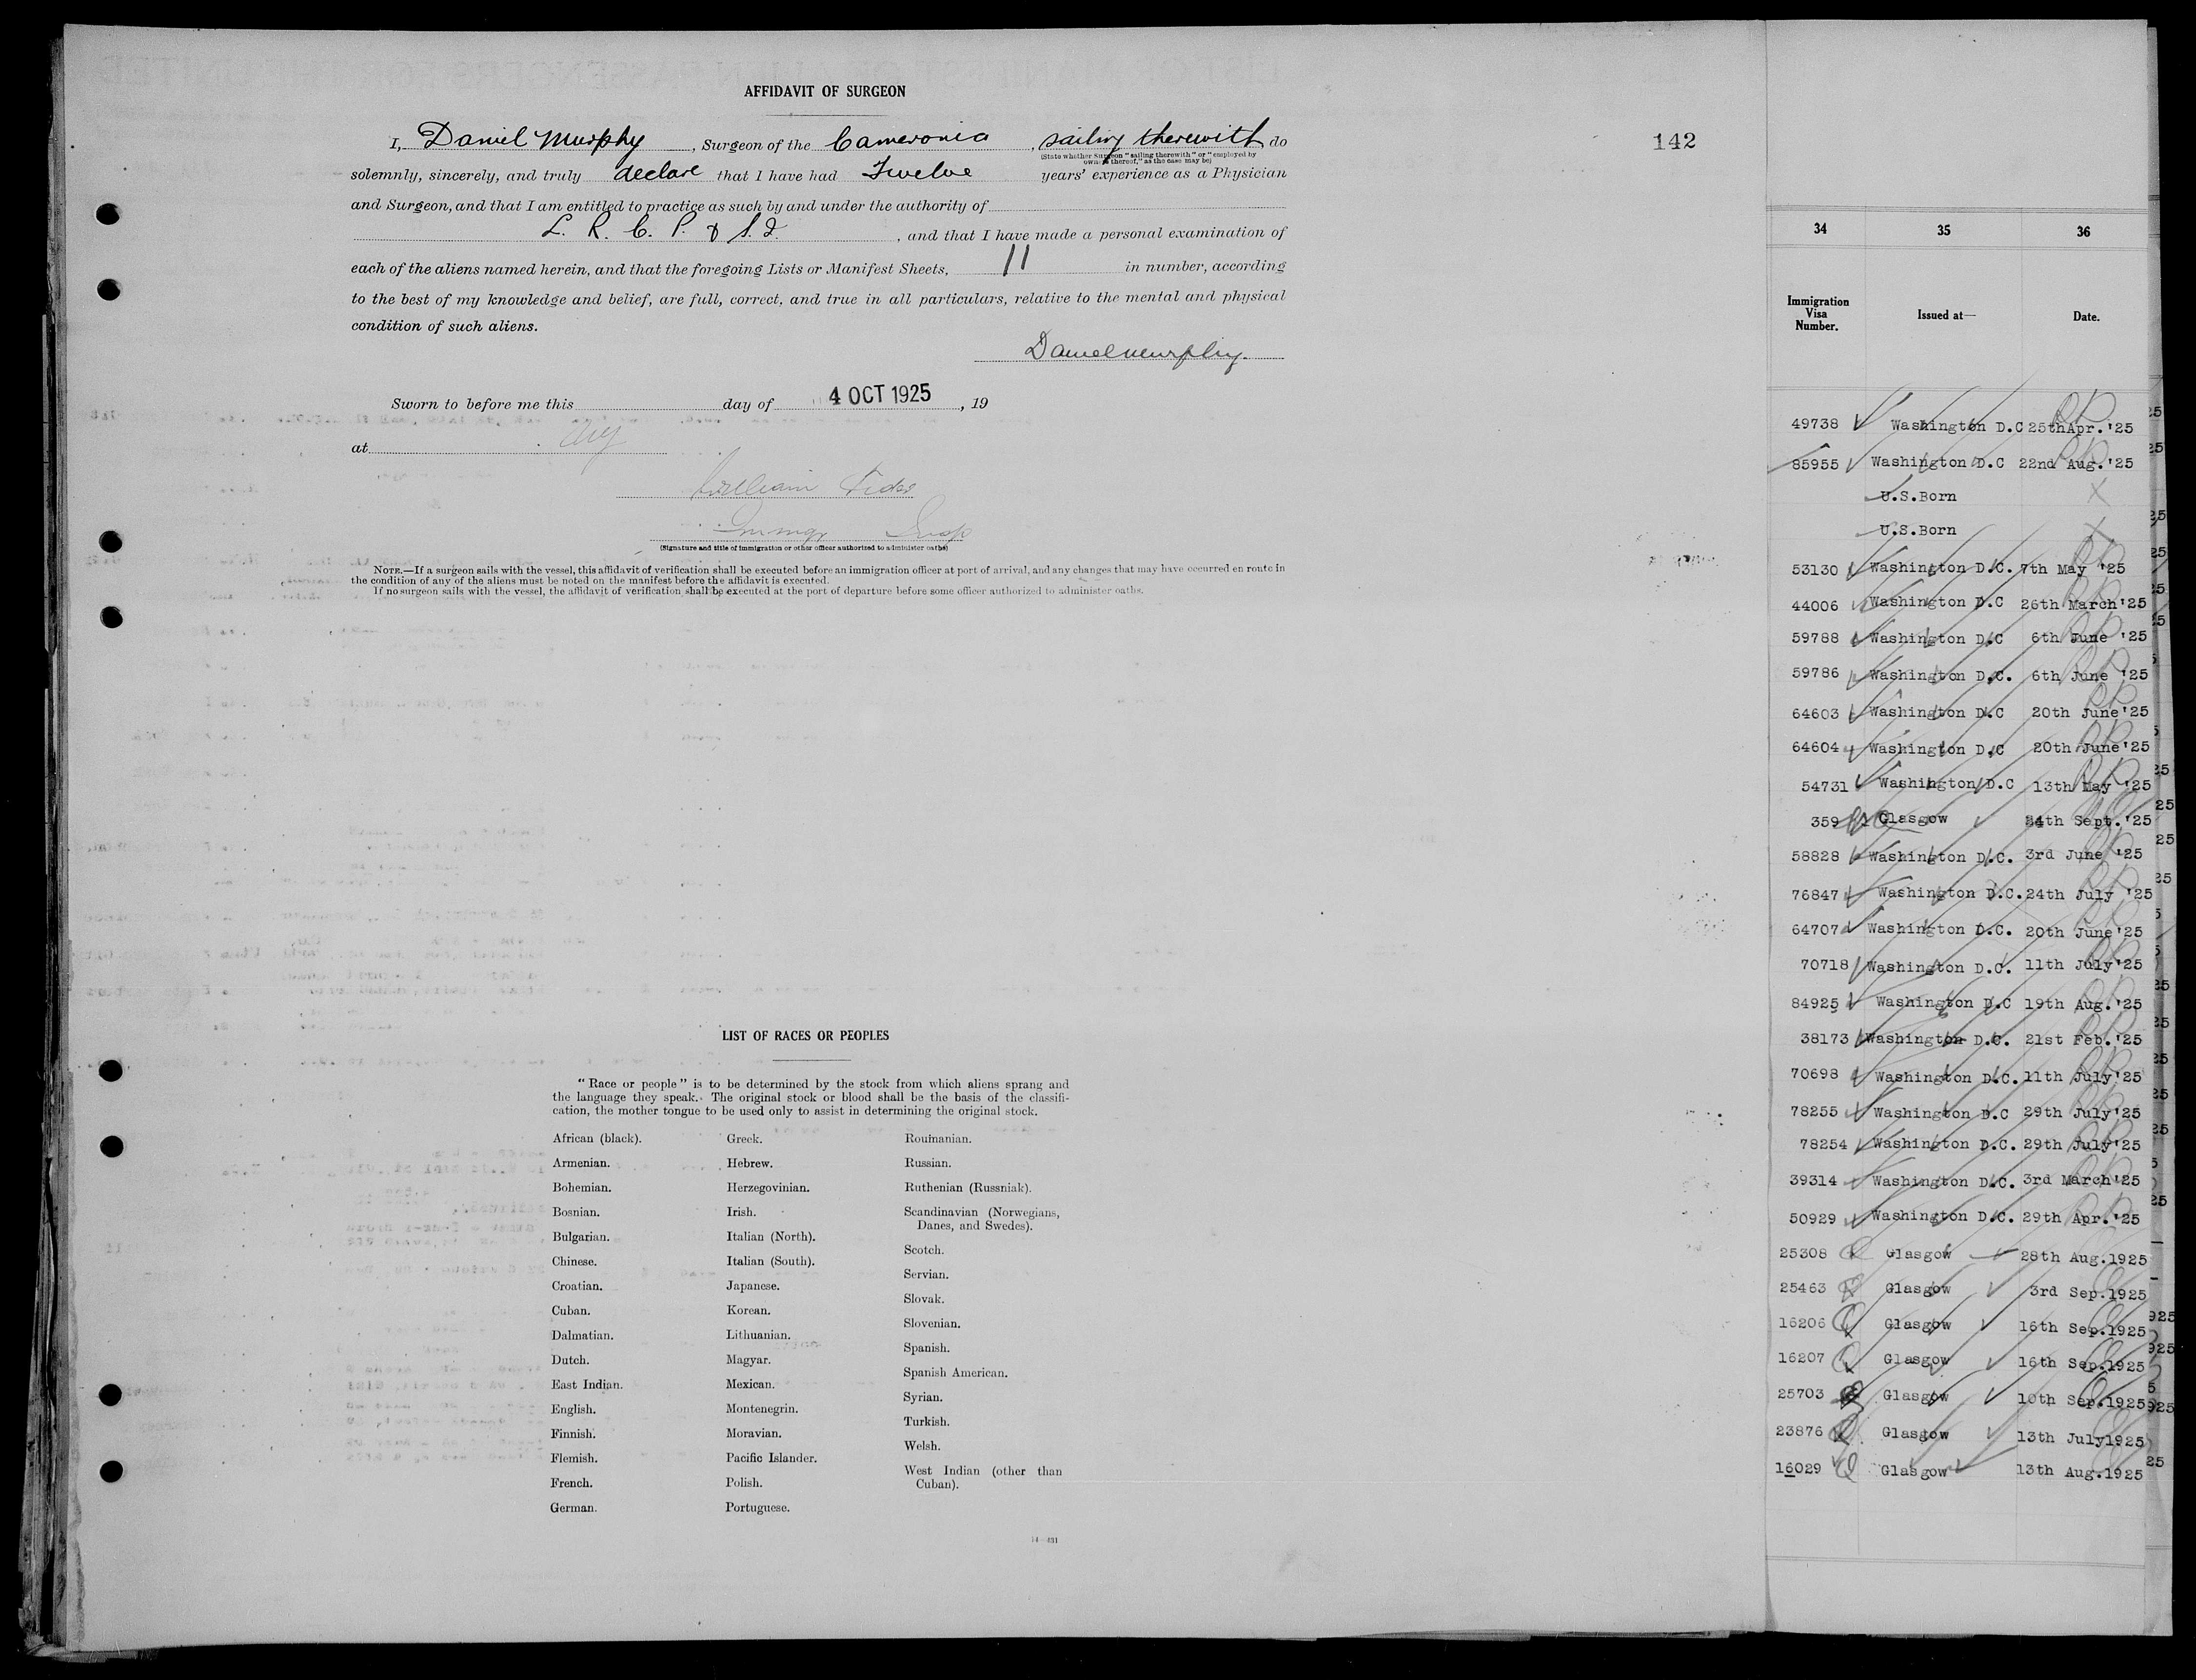 AFFIDAVIT OF SURGEON
142
I, Daniel Murphy, Surgeon of the Cameronia, sailing therewith do
(State whether Surgeon "sailing therewith" or "employed by
owners thereof," as the case may be)
solemnly, sincerely, and truly declare that I have had Twelve years' experience as a Physician
and Surgeon, and that I am entitled to practice as such by and under the authority of
L. R. C. P. & S. I. , and that I have made a personal examination of
each of the aliens named herein, and that the foregoing Lists or Manifest Sheets, 11 in number, according
to the best of my knowledge and belief, are full, correct, and true in all particulars, relative to the mental and physical
condition of such aliens.
Daniel Murphy.
Sworn to before me this day of 4 OCT 1925, 19
at NY
William
Immig Insp
(Signature and title of immigration or other officer authorized to administer oaths)
NOTE.—If a surgeon sails with the vessel, this affidavit of verification shall be executed before an immigration officer at port of arrival, and any changes that may have occurred en route in
the condition of any of the aliens must be noted on the manifest before the affidavit is executed.
If no surgeon sails with the vessel, the affidavit of verification shall be executed at the port of departure before some officer authorized to administer oaths.
LIST OF RACES OR PEOPLES
"Race or people" is to be determined by the stock from which aliens sprang and
the language they speak. The original stock or blood shall be the basis of the classifi-
cation, the mother tongue to be used only to assist in determining the original stock.
African (black).
Armenian.
Bohemian.
Bosnian.
Bulgarian.
Chinese.
Croatian.
Cuban.
Dalmatian.
Dutch.
East Indian.
English.
Finnish.
Flemish.
French.
German.
Greek.
Hebrew.
Herzegovinian.
Irish.
Italian (North).
Italian (South).
Japanese.
Korean.
Lithuanian.
Magyar.
Mexican.
Montenegrin.
Moravian.
Pacific Islander.
Polish.
Portuguese.
Roumanian.
Russian.
Ruthenian (Russniak).
Scandinavian (Norwegians,
Danes, and Swedes).
Scotch.
Servian.
Slovak.
Slovenian.
Spanish.
Spanish American.
Syrian.
Turkish.
Welsh.
West Indian (other than
Cuban).
34 35 36
Immigration
Visa
Number.
Issued at—
Date.
49738 Washington D.C 25th Apr.'25
85955 Washington D.C 22nd Aug.'25
U.S.Born
U.S.Born
53130 Washington D.C. 7th May '25
44006 Washington D.C 26th March'25
59788 Washington D.C 6th June '25
59786 Washington D.C. 6th June '25
64603 Washington D.C 20th June'25
64604 Washington D.C 20th June'25
54731 Washington D.C 13th May '25
359 Glasgow 24th Sept.'25
58828 Washington D.C. 3rd June '25
76847 Washington D.C. 24th July '25
64707 Washington D.C. 20th June'25
70718 Washington D.C. 11th July'25
84925 Washington D.C 19th Aug.'25
38173 Washington D.C. 21st Feb.'25
70698 Washington D.C. 11th July'25
78255 Washington D.C 29th July'25
78254 Washington D.C. 29th July'25
39314 Washington D.C. 3rd March'25
50929 Washington D.C. 29th Apr.'25
25308 Glasgow 28th Aug.1925
25463 Glasgow 3rd Sep.1925
16206 Glasgow 16th Sep.1925
16207 Glasgow 16th Sep.1925
25703 Glasgow 10th Sep.1925
23876 Glasgow 13th July1925
16029 Glasgow 13th Aug.1925